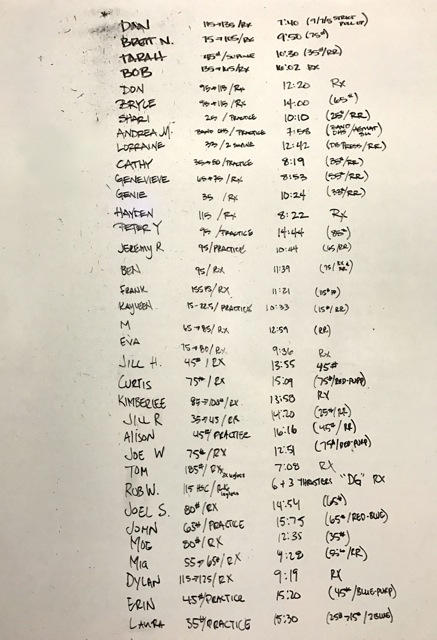 DAN 115→135/RX 7:40 (7/7/5 STRICT PULL UP)
BRETT N. 75→105/RX 9:50 (75#)
TARAH 10:30 (35#/RR)
BOB 16:02 RX
DON 95→115/RX 12:20 RX
BRYCE 95→115/RX 14:00 (65#)
SHARI 25/PRACTICE 10:10 (25#/RR)
ANDREA M. /PRACTICE 7:58
LORRAINE 33/ 12:42 (DB PRESS/RR)
CATHY 35→50/PRACTICE 8:19 (35#/RR)
GENEVIEVE 65→75/RX 8:53 (55#/RR)
GENIE 35/RX 10:24 (33#/RR)
HAYDEN 115/RX 8:22 RX
PETER Y 95/PRACTICE 14:44 (85#)
JEREMY R 95/PRACTICE 10:44 (65/RR)
BEN 95/RX 11:39
FRANK /RX 11:21 (115#)
KAYLEEN 15→22.5/PRACTICE 10:33 (15#/RR)
M 65→85/RX 12:59 (RR)
EVA 75→80/RX 9:36 RX
JILL H. 45#/RX 13:55 45#
CURTIS 75#/RX 15:09 (75#/RED-PURP)
KIMBERLEE 85→100#/RX 13:58 RX
JILL R 35→45/RX 14:20 (25#/RR)
ALISON 45#/PRACTICE 16:16 (45#/RR)
JOE W 75#/RX 12:51 (75#/RED-PURP)
TOM 185#/RX 7:08 RX
ROB W. 115 HSC/RX 6+3 THRUSTERS "DG" RX
JOEL S. 80#/RX 14:54 (65#)
JOHN 63#/PRACTICE 15:75 (65#/RED-BLUE)
MOE 80#/RX 12:35 (35#)
MIA 55→65#/RX 9:28 (55#/RR)
DYLAN 115→125/RX 9:19 RX
ERIN 45#/PRACTICE 15:20 (45#/BLUE-PURP)
LAURA 35#/PRACTICE 15:30 (25#→15#/2BLUE)